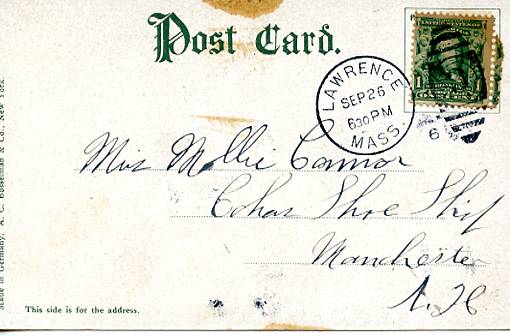 Post Card.
LAWRENCE
SEP 26
630 PM
MASS.
6
1
Miss Mollie Connor
Cohas Shoe Shop
Manchester
N. H
This side is for the address.
Made in Germany. A. C. Bosselman & Co., New York.